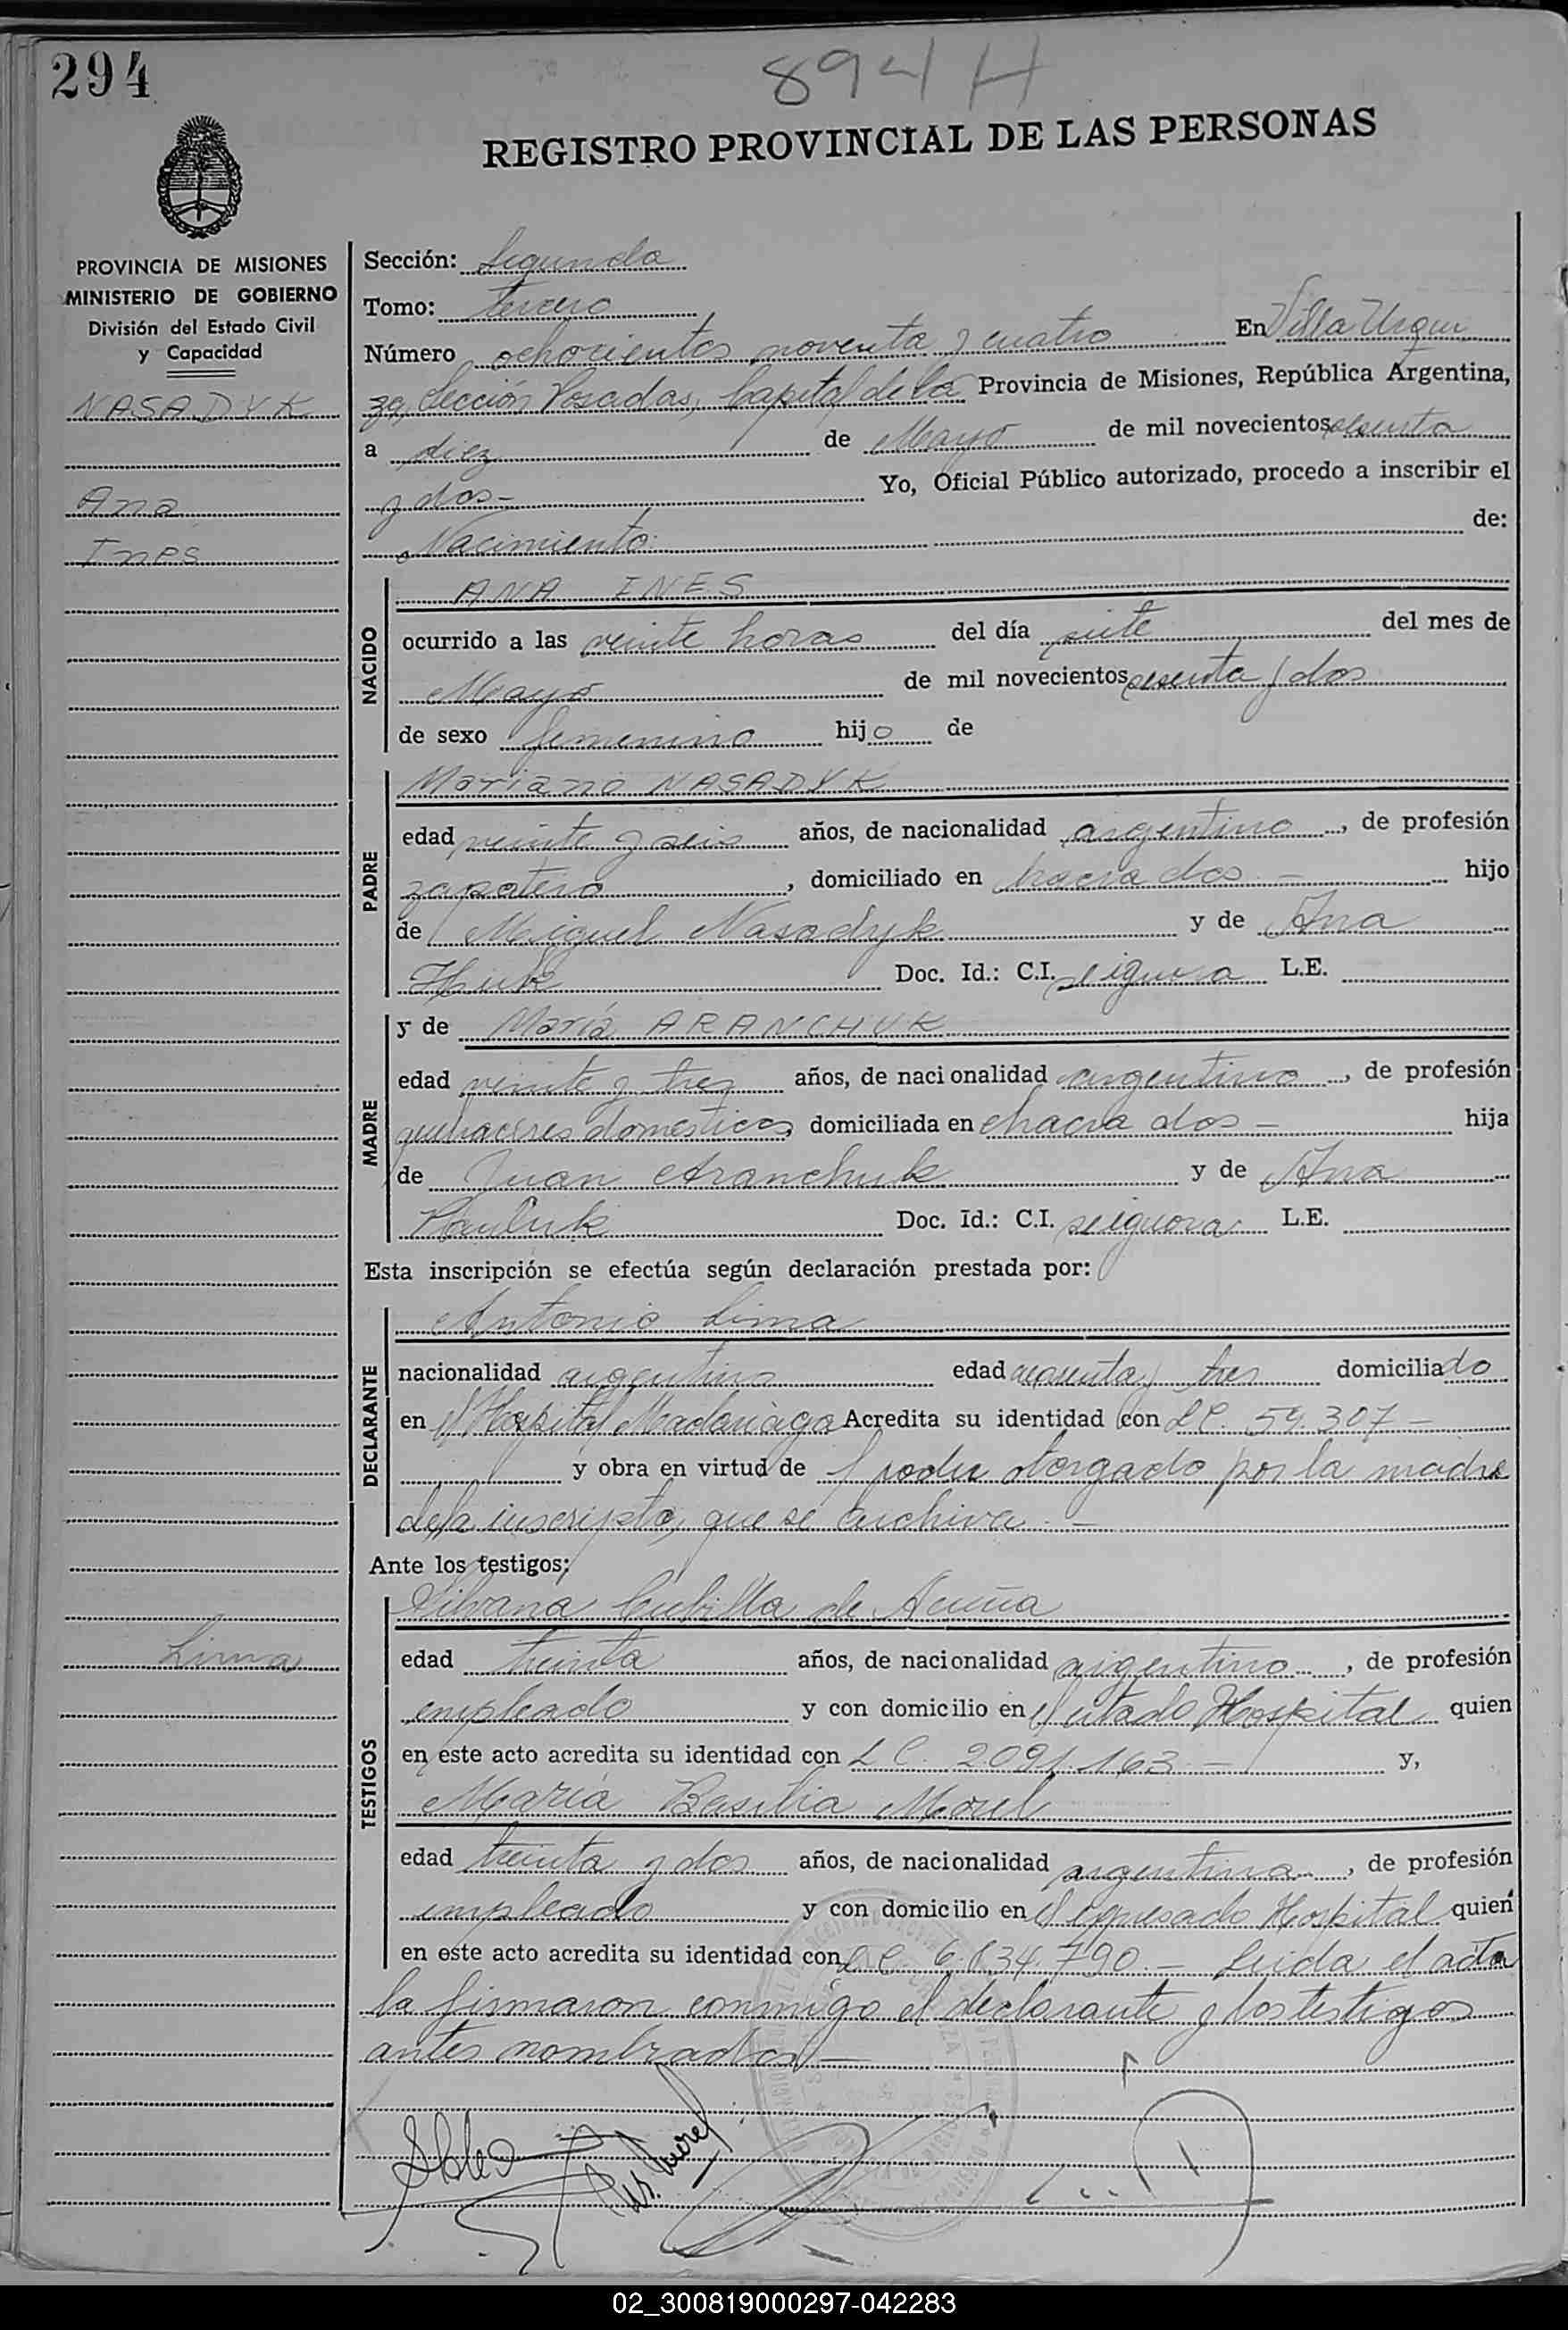 294
894 H
REGISTRO PROVINCIAL DE LAS PERSONAS
PROVINCIA DE MISIONES
MINISTERIO DE GOBIERNO
División del Estado Civil
y Capacidad
NASADYK
Ana
Ines
Lima
Sección: Segunda
Tomo: tercero
Número ochocientos noventa y cuatro En Villa Urqui
za, Sección Posadas, Capital de la Provincia de Misiones, República Argentina,
a diez de Mayo de mil novecientos sesenta
y dos - Yo, Oficial Público autorizado, procedo a inscribir el
Nacimiento de:
NACIDO
ANA INES
ocurrido a las veinte horas del día siete del mes de
Mayo de mil novecientos sesenta y dos
de sexo femenino hijo de
PADRE
Mariano NASADYK
edad veinte y seis años, de nacionalidad argentino, de profesión
zapatero, domiciliado en chacra dos - hijo
de Miguel Nasadyk y de Ana
Huk Doc. Id.: C.I. se ignora L.E.
MADRE
y de María ARANCHUK
edad veinte y tres años, de nacionalidad argentino, de profesión
quehaceres domesticos, domiciliada en chacra dos - hija
de Juan Aranchuk y de Ana
Pauluk Doc. Id.: C.I. se ignora L.E.
Esta inscripción se efectúa según declaración prestada por:
DECLARANTE
Antonio Lima
nacionalidad argentino edad y tres domiciliado
en el Hospital Madariaga Acredita su identidad con 59.307 -
y obra en virtud de poder otorgado por la madre
de la inscripta, que se archiva. -
Ante los testigos;
TESTIGOS
Silvana Cubilla de Acuña
edad treinta años, de nacionalidad argentino, de profesión
empleado y con domicilio en el citado Hospital quien
en este acto acredita su identidad con L C. 2.091.163 - y,
María Basilia Morel
edad treinta y dos años, de nacionalidad argentina, de profesión
empleado y con domicilio en el expresado Hospital quien
en este acto acredita su identidad con L C. 790 - Leida el acta
la firmaron conmigo el declarante y los testigos
antes nombrados -
02_300819000297-042283